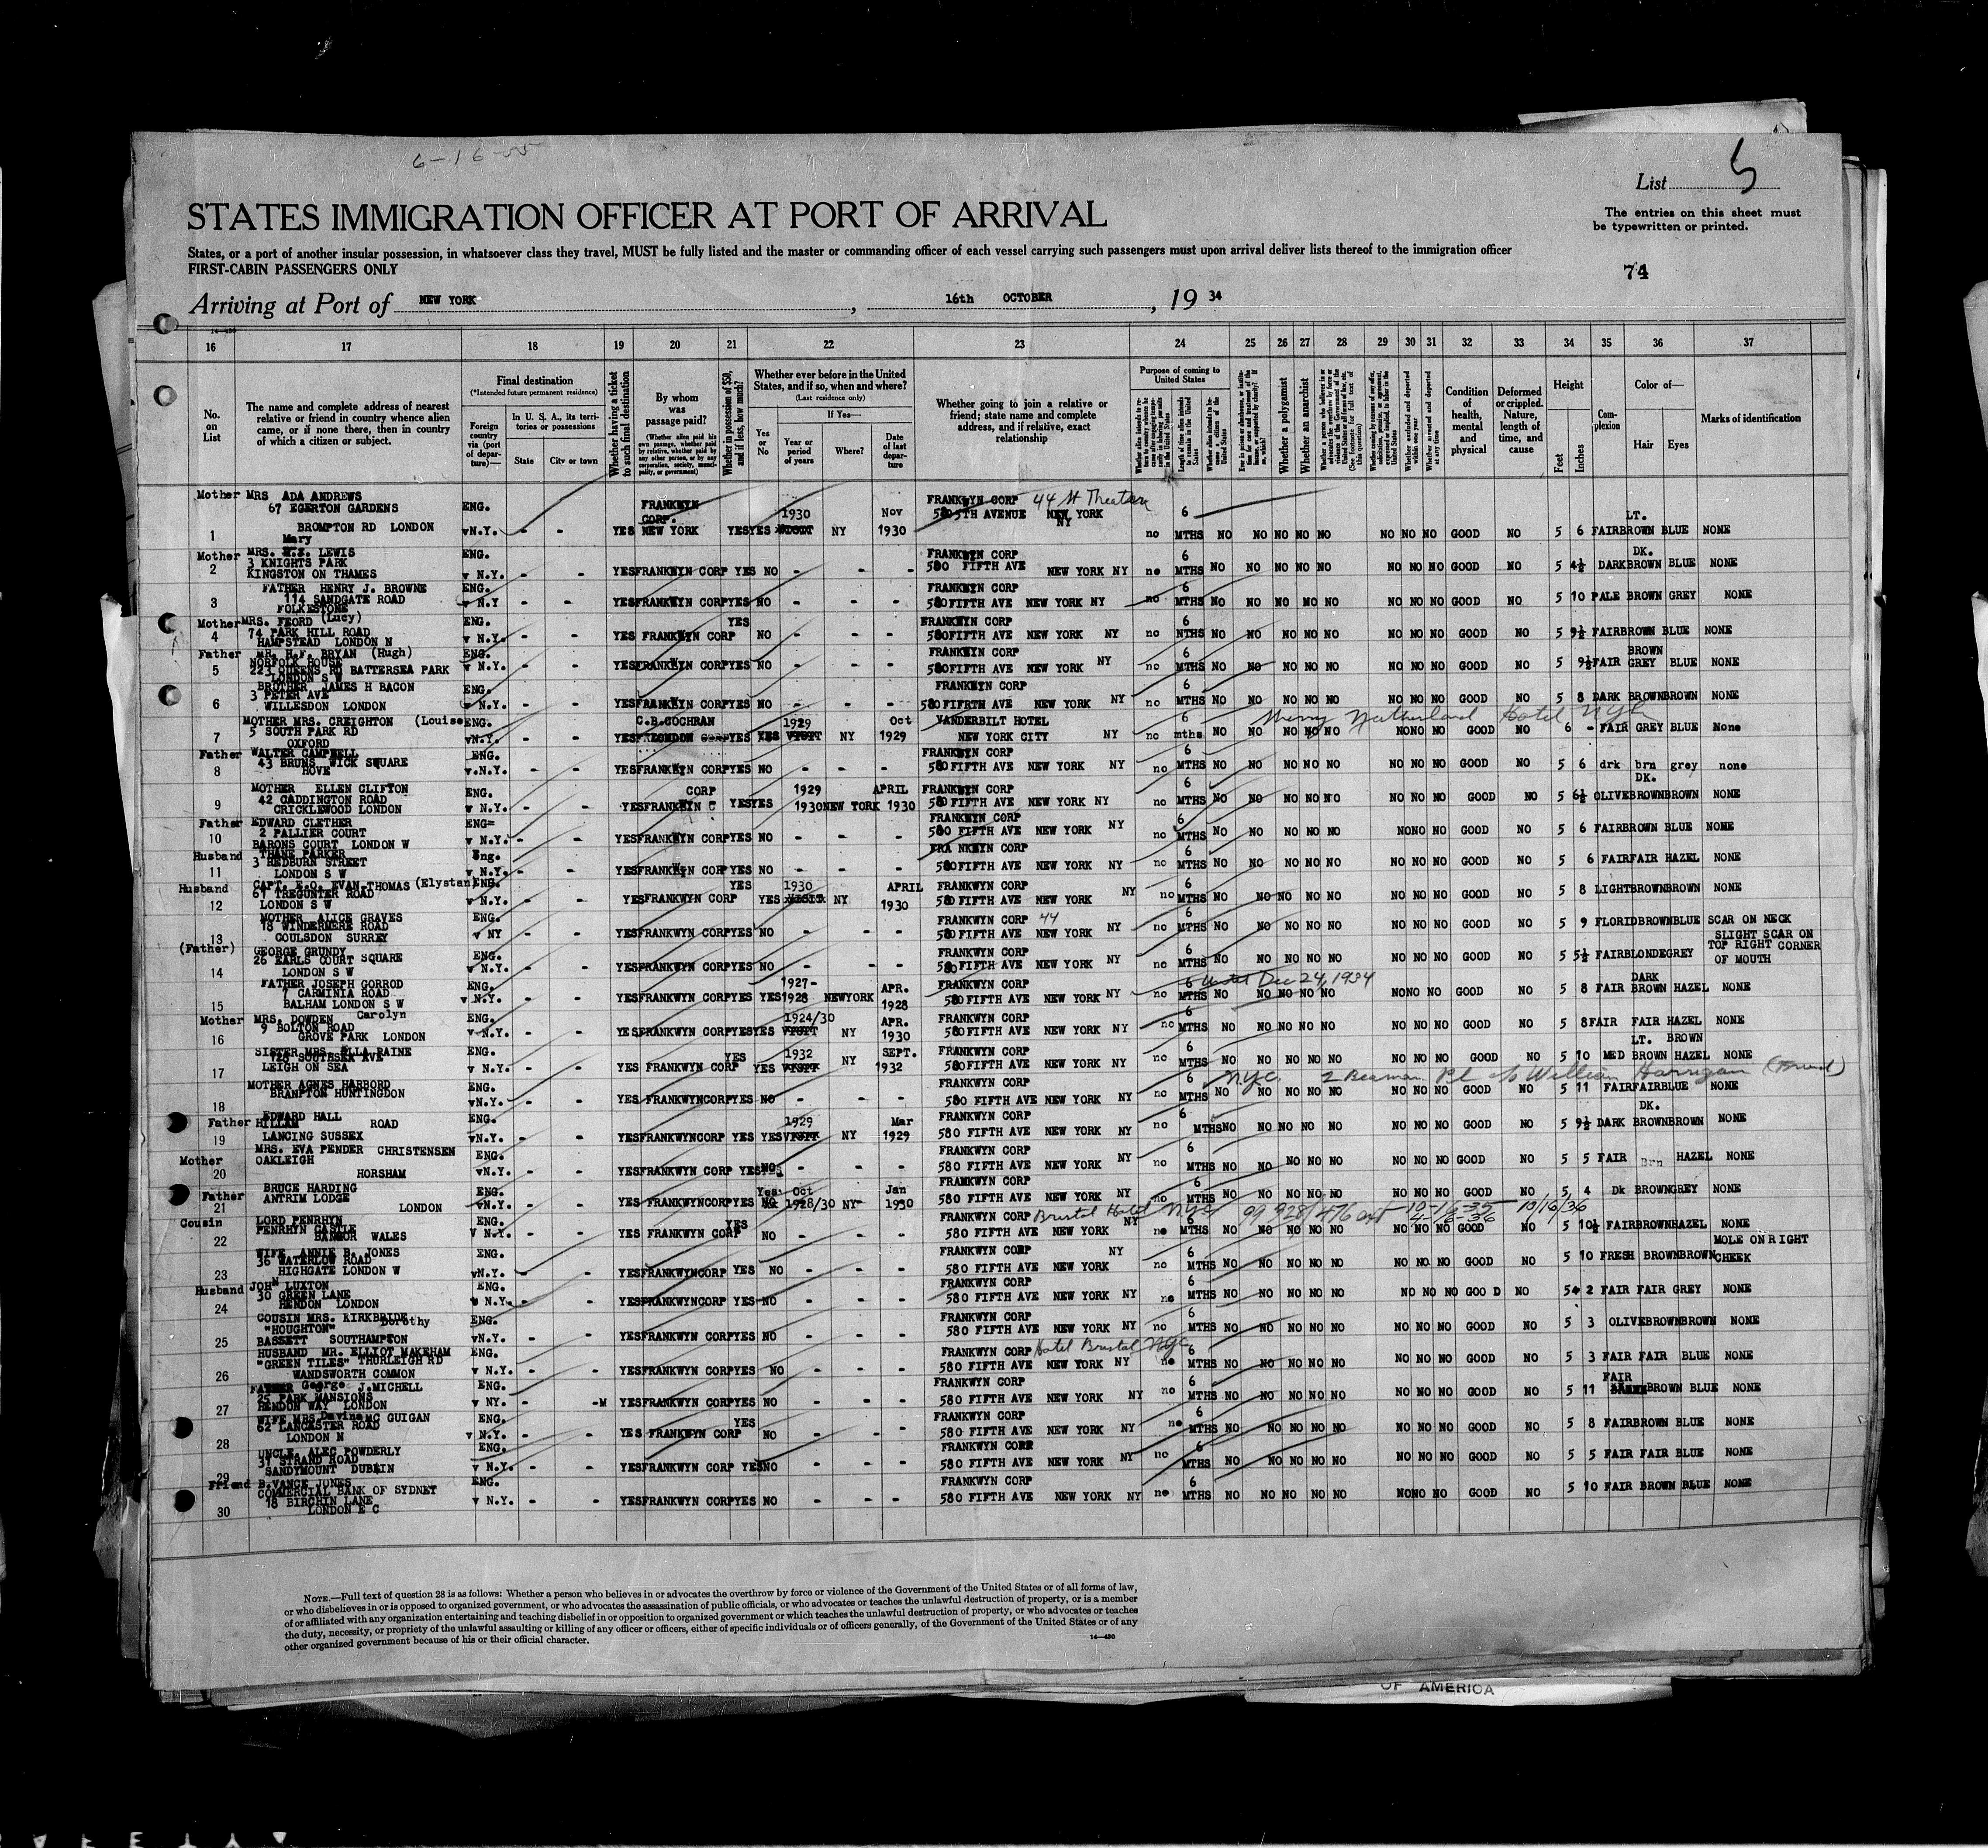 6-16-55
List 5
STATES IMMIGRATION OFFICER AT PORT OF ARRIVAL
The entries on this sheet must
be typewritten or printed.
States, or a port of another insular possession, in whatsoever class they travel, MUST be fully listed and the master or commanding officer of each vessel carrying such passengers must upon arrival deliver lists thereof to the immigration officer
FIRST-CABIN PASSENGERS ONLY
74
Arriving at Port of NEW YORK, 16th OCTOBER, 19 34
16 17 18 19 20 21 22 23 24 25 26 27 28 29 30 31 32 33 34 35 36 37
No. on List
The name and complete address of nearest relative or friend in country whence alien came, or if none there, then in country of which a citizen or subject.
Final destination
(*Intended future permanent residence)
Foreign country via (port of departure)—
In U. S. A., its territories or possessions
State
City or town
Whether having a ticket to such final destination
By whom was passage paid?
(Whether alien paid his own passage, whether paid by relative, whether paid by any other person, or by any corporation, society, municipality, or government)
Whether in possession of $50, and if less, how much?
Whether ever before in the United States, and if so, when and where?
(Last residence only)
Yes or No
If Yes—
Year or period of years
Where?
Date of last departure
Whether going to join a relative or friend; state name and complete address, and if relative, exact relationship
Purpose of coming to United States
Whether a polygamist
Whether an anarchist
Condition of health, mental and physical
Deformed or crippled. Nature, length of time, and cause
Height
Feet
Inches
Complexion
Color of—
Hair
Eyes
Marks of identification
1 Mother MRS ADA ANDREWS 67 EGERTON GARDENS BROMPTON RD LONDON ENG. v N.Y. - - YES FRANKWYN CORP. NEW YORK YES YES 1930 NY Nov 1930 FRANKWYN CORP 44 St Theater 580 5TH AVENUE NEW YORK NY no 6 MTHS NO NO NO NO NO NO NO NO GOOD NO 5 6 FAIR LT. BROWN BLUE NONE
2 Mother MRS. Mary LEWIS 3 KNIGHTS PARK KINGSTON ON THAMES ENG. v N.Y. - - YES FRANKWYN CORP YES NO - - - FRANKWYN CORP 580 FIFTH AVE NEW YORK NY no 6 MTHS NO NO NO NO NO NO NO NO GOOD NO 5 4½ DARK DK. BROWN BLUE NONE
3 FATHER HENRY J. BROWNE 114 SANDGATE ROAD FOLKESTONE ENG. v N.Y - - YES FRANKWYN CORP YES NO - - - FRANKWYN CORP 580 FIFTH AVE NEW YORK NY no 6 MTHS NO NO NO NO NO NO NO NO GOOD NO 5 10 PALE BROWN GREY NONE
4 Mother MRS. FEORD (Lucy) 74 PARK HILL ROAD HAMPSTEAD LONDON N ENG. v N.Y. - - YES FRANKWYN CORP YES NO - - - FRANKWYN CORP 580 FIFTH AVE NEW YORK NY no 6 MTHS NO NO NO NO NO NO NO NO GOOD NO 5 9½ FAIR BROWN BLUE NONE
5 Father MR. H.F. BRYAN (Hugh) NORFOLK HOUSE 223 QUEENS RD BATTERSEA PARK LONDON S W ENG. v N.Y. - - YES FRANKWYN CORP YES NO - - - FRANKWYN CORP 580 FIFTH AVE NEW YORK NY no 6 MTHS NO NO NO NO NO NO NO NO GOOD NO 5 9½ FAIR BROWN GREY BLUE NONE
6 BROTHER JAMES H BACON 3 PETER AVE WILLESDON LONDON ENG. v N.Y. - - YES FRANKWYN CORP YES NO - - - FRANKWYN CORP 580 FIFRTH AVE NEW YORK NY no 6 MTHS NO NO NO NO NO NO NO NO GOOD NO 5 8 DARK BROWN BROWN NONE
7 MOTHER MRS. CREIGHTON (Louise 5 SOUTH PARK RD OXFORD ENG. v N.Y. - - YES C.B.COCHRAN LONDON YES YES 1929 NY Oct 1929 VANDERBILT HOTEL NEW YORK CITY NY Sherry Netherland Hotel NYC no 6 mths NO NO NO NO NO NO NO NO GOOD NO 6 - FAIR GREY BLUE None
8 Father WALTER CAMPBELL 43 BRUNS WICK SQUARE HOVE ENG. v N.Y. - - YES FRANKWYN CORP YES NO - - - FRANKWYN CORP 580 FIFTH AVE NEW YORK NY no 6 MTHS NO NO NO NO NO NO NO NO GOOD NO 5 6 drk brn grey none
9 MOTHER ELLEN CLIFTON 42 CADDINGTON ROAD CRICKLEWOOD LONDON ENG. v N.Y. - - YES FRANKWYN CORP YES YES 1929 1930 NEW YORK APRIL 1930 FRANKWYN CORP 580 FIFTH AVE NEW YORK NY no 6 MTHS NO NO NO NO NO NO NO NO GOOD NO 5 6½ OLIVE DK. BROWN BROWN NONE
10 Father EDWARD CLETHER 2 PALLIER COURT BARONS COURT LONDON W ENG= v N.Y. - - YES FRANKWYN CORP YES NO - - - FRANKWYN CORP 580 FIFTH AVE NEW YORK NY no 6 MTHS NO NO NO NO NO NO NO NO GOOD NO 5 6 FAIR BROWN BLUE NONE
11 Husband THANE PARKER 3 REDBURN STREET LONDON S W Eng. v N.Y. - - YES FRANKWYN CORP YES NO - - - FRANKWYN CORP 580 FIFTH AVE NEW YORK NY no 6 MTHS NO NO NO NO NO NO NO NO GOOD NO 5 6 FAIR FAIR HAZEL NONE
12 Husband CAPT. E.O. EVAN-THOMAS (Elystan) 67 TREGUNTER ROAD LONDON S W ENG. v N.Y. - - YES FRANKWYN CORP YES YES 1930 NY APRIL 1930 FRANKWYN CORP 580 FIFTH AVE NEW YORK NY no 6 MTHS NO NO NO NO NO NO NO NO GOOD NO 5 8 LIGHT BROWN BROWN NONE
13 MOTHER ALICE GRAVES 18 WINDERMERE ROAD COULSDON SURREY ENG. v NY - - YES FRANKWYN CORP YES NO - - - FRANKWYN CORP 44 580 FIFTH AVE NEW YORK NY no 6 MTHS NO NO NO NO NO NO NO NO GOOD NO 5 9 FLORID BROWN BLUE SCAR ON NECK
14 (Father) GEORGE GRUNDY 26 EARLS COURT SQUARE LONDON S W ENG. v N.Y. - - YES FRANKWYN CORP YES NO - - - FRANKWYN CORP 580 FIFTH AVE NEW YORK NY no 6 MTHS NO NO NO NO NO NO NO NO GOOD NO 5 5½ FAIR BLONDE GREY SLIGHT SCAR ON TOP RIGHT CORNER OF MOUTH
15 FATHER JOSEPH GORROD 7 CARMINIA ROAD BALHAM LONDON S W ENG. v N.Y. - - YES FRANKWYN CORP YES YES 1927-1928 NEWYORK APR. 1928 FRANKWYN CORP 580 FIFTH AVE NEW YORK NY no 6 MTHS until Dec 24, 1934 NO NO NO NO NO NO NO NO GOOD NO 5 8 FAIR DARK BROWN HAZEL NONE
16 Mother MRS. DOWDEN Carolyn 9 BOLTON ROAD GROVE PARK LONDON ENG. v N.Y. - - YES FRANKWYN CORP YES YES 1924/30 NY APR. 1930 FRANKWYN CORP 580 FIFTH AVE NEW YORK NY no 6 MTHS NO NO NO NO NO NO NO NO GOOD NO 5 8 FAIR FAIR HAZEL NONE
17 SISTER MRS. ELLA RAINE 128 SOUTHSEA AVE LEIGH ON SEA ENG. v N.Y. - - YES FRANKWYN CORP YES YES 1932 NY SEPT. 1932 FRANKWYN CORP 580 FIFTH AVE NEW YORK NY no 6 MTHS NO NO NO NO NO NO NO NO GOOD NO 5 10 MED LT. BROWN BROWN HAZEL NONE
18 MOTHER AGNES HARBORD BRAMPTON HUNTINGDON ENG. v N.Y. - - YES FRANKWYN CORP YES NO - - - FRANKWYN CORP 580 FIFTH AVE NEW YORK NY N.Y.C. 2 Beaman Pl c/o William Harrigan (Friend) no 6 MTHS NO NO NO NO NO NO NO NO GOOD NO 5 11 FAIR FAIR BLUE NONE
19 Father EDWARD HALL HILLAM ROAD LANCING SUSSEX ENG. v N.Y. - - YES FRANKWYN CORP YES YES 1929 NY Mar 1929 FRANKWYN CORP 580 FIFTH AVE NEW YORK NY no 6 MTHS NO NO NO NO NO NO NO NO GOOD NO 5 9½ DARK DK. BROWN BROWN NONE
20 Mother MRS. EVA PENDER CHRISTENSEN OAKLEIGH HORSHAM ENG. v N.Y. - - YES FRANKWYN CORP YES NO - - - FRANKWYN CORP 580 FIFTH AVE NEW YORK NY no 6 MTHS NO NO NO NO NO NO NO NO GOOD NO 5 5 FAIR Brn HAZEL NONE
21 Father BRUCE HARDING ANTRIM LODGE LONDON ENG. v N.Y. - - YES FRANKWYN CORP YES Yes Oct 1928/30 NY Jan 1930 FRANKWYN CORP 580 FIFTH AVE NEW YORK NY no 6 MTHS NO NO NO NO NO NO NO NO GOOD NO 5 4 Dk BROWN GREY NONE
22 Cousin LORD PENRHYN PENRHYN CASTLE BANGOR WALES ENG. V N.Y. - - YES FRANKWYN CORP YES NO - - - FRANKWYN CORP Bristol Hotel NYC 580 FIFTH AVE NEW YORK NY 10/16/36 no 6 MTHS NO NO NO NO NO NO NO NO GOOD NO 5 10½ FAIR BROWN HAZEL NONE
23 WIFE ANNIE B. JONES 36 WATERLOW ROAD HIGHGATE LONDON W ENG. v N.Y. - - YES FRANKWYN CORP YES NO - - - FRANKWYN CORP 580 FIFTH AVE NEW YORK NY no 6 MTHS NO NO NO NO NO NO NO NO GOOD NO 5 10 FRESH BROWN BROWN MOLE ON RIGHT CHEEK
24 Husband JOHN LUXTON 30 GREEN LANE HENDON LONDON ENG. v N.Y. - - YES FRANKWYN CORP YES NO - - - FRANKWYN CORP 580 FIFTH AVE NEW YORK NY no 6 MTHS NO NO NO NO NO NO NO NO GOOD NO 5 2 FAIR FAIR GREY NONE
25 COUSIN MRS. KIRKBRIDE Dorothy "HOUGHTON" BASSETT SOUTHAMPTON ENG. v N.Y. - - YES FRANKWYN CORP YES NO - - - FRANKWYN CORP 580 FIFTH AVE NEW YORK NY no 6 MTHS NO NO NO NO NO NO NO NO GOOD NO 5 3 OLIVE BROWN BROWN NONE
26 HUSBAND MR. ELLIOT MAKEHAM "GREEN TILES" THURLEIGH RD WANDSWORTH COMMON ENG. v N.Y. - - YES FRANKWYN CORP YES NO - - - FRANKWYN CORP Hotel Bristol NYC 580 FIFTH AVE NEW YORK NY no 6 MTHS NO NO NO NO NO NO NO NO GOOD NO 5 3 FAIR FAIR BLUE NONE
27 FATHER George J. MICHELL 25 PARK MANSIONS HENDON WAY LONDON ENG. v NY. -M YES FRANKWYN CORP YES NO - - - FRANKWYN CORP 580 FIFTH AVE NEW YORK NY no 6 MTHS NO NO NO NO NO NO NO NO GOOD NO 5 11 FAIR BROWN BLUE NONE
28 WIFE MRS Davina MC GUIGAN 62 LANCASTER ROAD LONDON N ENG. v N.Y. - - YES FRANKWYN CORP YES NO - - - FRANKWYN CORP 580 FIFTH AVE NEW YORK NY no 6 MTHS NO NO NO NO NO NO NO NO GOOD NO 5 8 FAIR BROWN BLUE NONE
29 UNCLE. ALEC POWDERLY 37 STRAND ROAD SANDYMOUNT DUBLIN ENG. v N.Y. - - YES FRANKWYN CORP YES NO - - - FRANKWYN CORP 580 FIFTH AVE NEW YORK NY no 6 MTHS NO NO NO NO NO NO NO NO GOOD NO 5 5 FAIR FAIR BLUE NONE
30 Friend B. VANCE JONES COMMERCIAL BANK OF SYDNEY 18 BIRCHIN LANE LONDON E C ENG. v N.Y. - - YES FRANKWYN CORP YES NO - - - FRANKWYN CORP 580 FIFTH AVE NEW YORK NY no 6 MTHS NO NO NO NO NO NO NO NO GOOD NO 5 10 FAIR BROWN BLUE NONE
NOTE.—Full text of question 28 is as follows: Whether a person who believes in or advocates the overthrow by force or violence of the Government of the United States or of all forms of law,
or who disbelieves in or is opposed to organized government, or who advocates the assassination of public officials, or who advocates or teaches the unlawful destruction of property, or is a member
of or affiliated with any organization entertaining and teaching disbelief in or opposition to organized government or which teaches the unlawful destruction of property, or who advocates or teaches
the duty, necessity, or propriety of the unlawful assaulting or killing of any officer or officers, either of specific individuals or of officers generally, of the Government of the United States or of any
other organized government because of his or their official character.
14—430
OF AMERICA